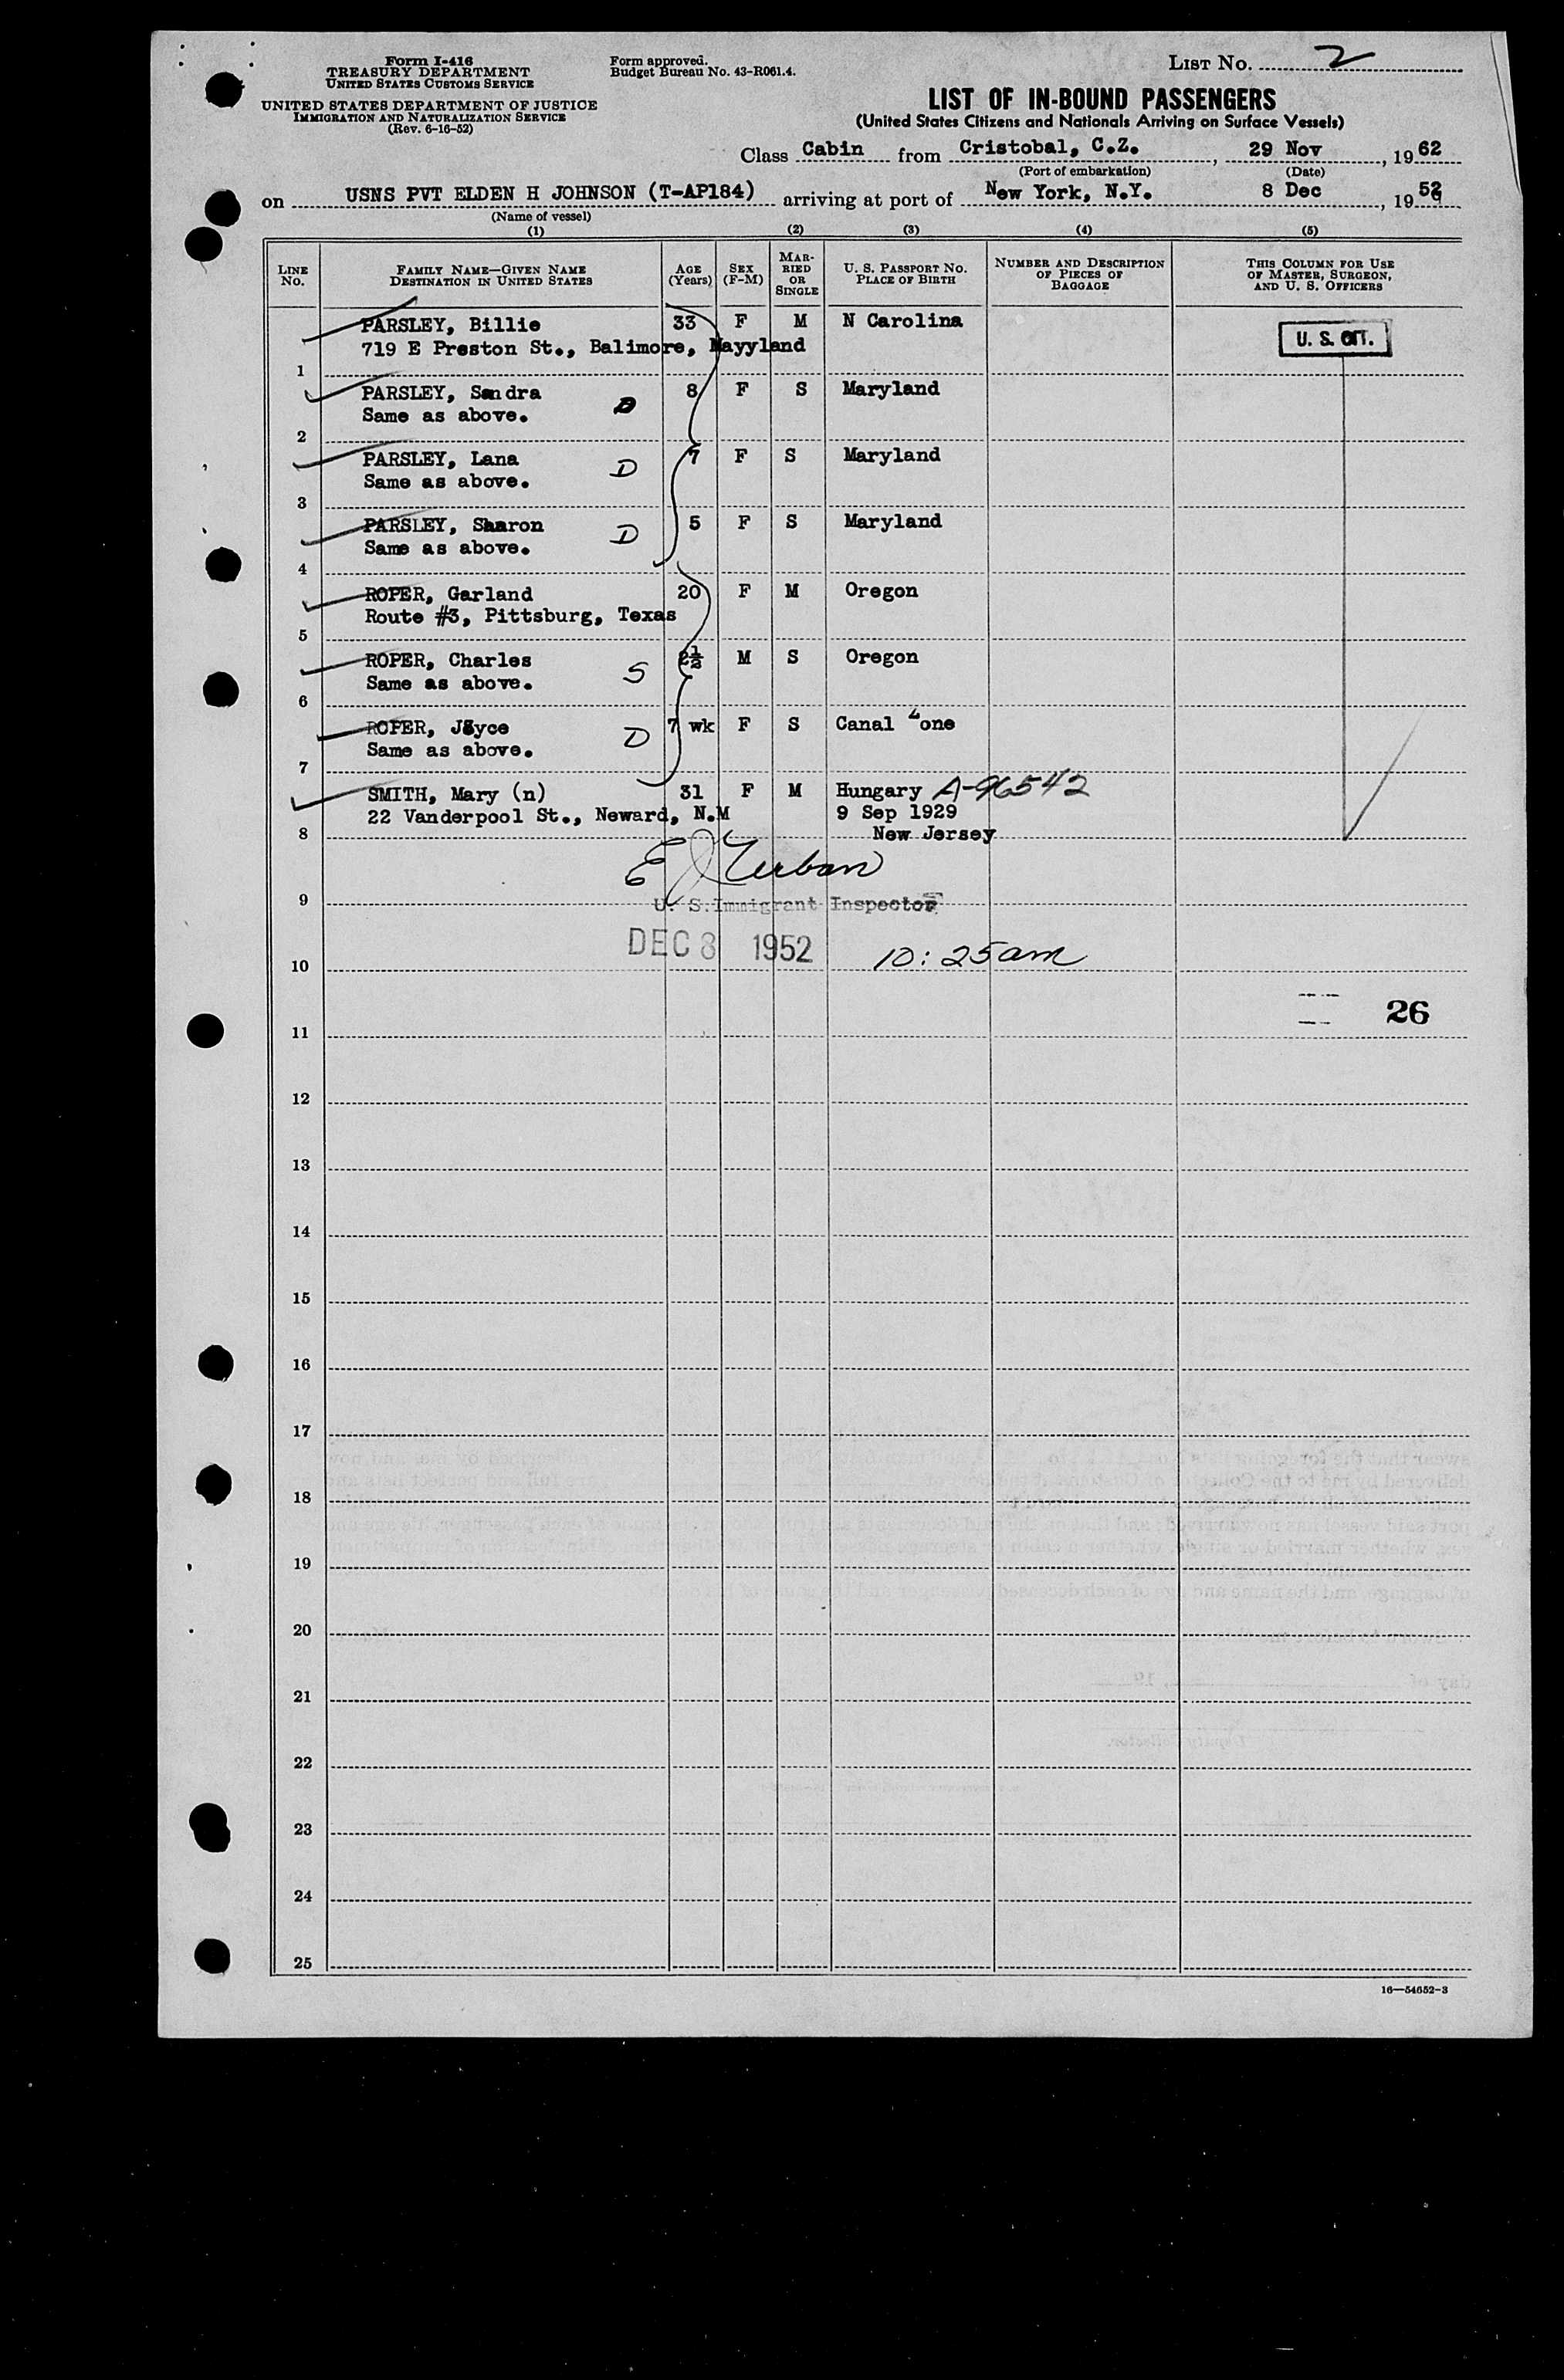 Form I-416
TREASURY DEPARTMENT
UNITED STATES CUSTOMS SERVICE
UNITED STATES DEPARTMENT OF JUSTICE
IMMIGRATION AND NATURALIZATION SERVICE
(Rev. 6-16-52)
Form approved.
Budget Bureau No. 43-R061.4.
LIST NO. 2
LIST OF IN-BOUND PASSENGERS
(United States Citizens and Nationals Arriving on Surface Vessels)
Class Cabin from Cristobal, C.Z., 29 Nov, 1962
(Port of embarkation) (Date)
on USNS PVT ELDEN H JOHNSON (T-AP184) arriving at port of New York, N.Y. 8 Dec, 1952
(Name of vessel)
(1) (2) (3) (4) (5)
LINE NO. FAMILY NAME—GIVEN NAME DESTINATION IN UNITED STATES AGE (Years) SEX (F-M) MARRIED OR SINGLE U. S. PASSPORT NO. PLACE OF BIRTH NUMBER AND DESCRIPTION OF PIECES OF BAGGAGE THIS COLUMN FOR USE OF MASTER, SURGEON, AND U. S. OFFICERS
PARSLEY, Billie 33 F M N Carolina U. S. CIT.
719 E Preston St., Balimore, Mayyland
1
PARSLEY, Sandra D 8 F S Maryland
Same as above.
2
PARSLEY, Lana D 7 F S Maryland
Same as above.
3
PARSLEY, Sharon D 5 F S Maryland
Same as above.
4
ROPER, Garland 20 F M Oregon
Route #3, Pittsburg, Texas
5
ROPER, Charles S 2½ M S Oregon
Same as above.
6
ROPER, Joyce D 7 wk F S Canal Zone
Same as above.
7
SMITH, Mary (n) 31 F M Hungary A-96542
22 Vanderpool St., Neward, N.M 9 Sep 1929
8 New Jersey
E J Urban
9 U. S. Immigrant Inspector
DEC 8 1952 10:25am
10
26
11
12
13
14
15
16
17
18
19
20
21
22
23
24
25
16—54652-3